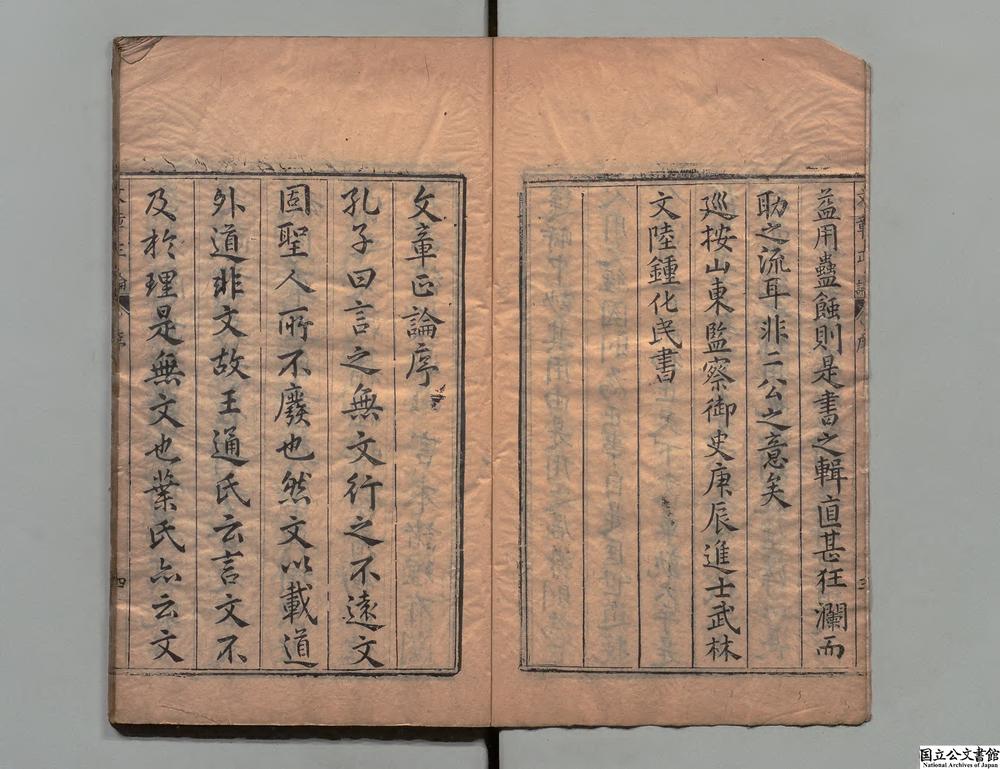 益用蠱蝕則是書之輯直甚狂瀾而
助之流耳非二公之意矣
巡按山東監察御史庚辰進士武林
文陸鍾化民書
文章正論序
孔子曰言之無文行之不遠文
固聖人所不廢也然文以載道
外道非文故王通氏云言文不
及於理是無文也葉氏亦云文
四
国立公文書館
National Archives of Japan